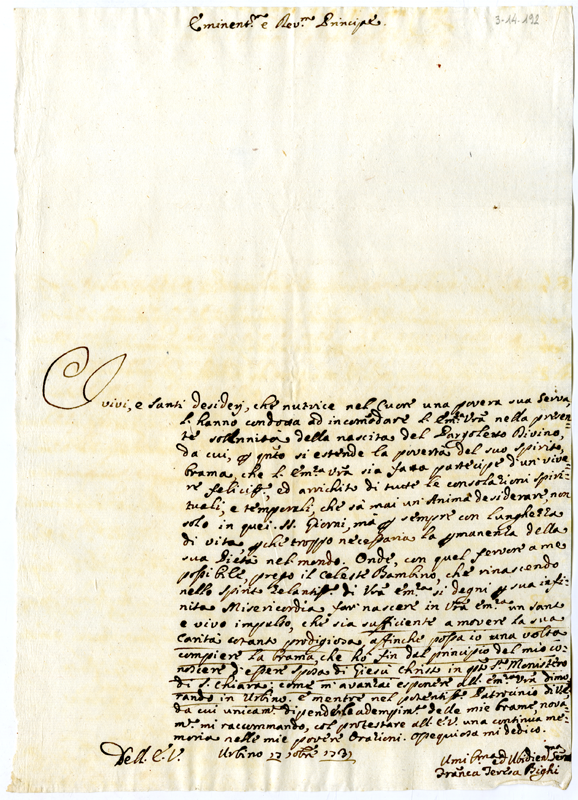 Eminent.mo e Rev.mo Principe.
3-14-192
I vivi, e santi desiderj, che nutrice nel Cuore una povera sua Serva,
l'hanno condotta ad incomodare l'Em.za Vra nella presen=
te solennità della nascita del Pargoletto Divino,
da cui, p qnto si estende la povertà del suo spirito,
brama, che l'Em.za Vra sia fatta partecipe d'un vive=
re feliciss.o, ed arrichito di tutte le consolazioni spiri=
tuali, e temporali, che sà mai un'Anima desiderare non
solo in quei SS. Giorni, ma p sempre con lunghezza
di vita, p che troppo necessaria la pmanenza della
sua Pietà nel mondo. Onde, con quel fervore a me
possibile, prego il Celeste Bambino, che rinascendo
nello spirito zelantiss.o di Vra Em.za si degni p sua infi=
nita Misericordia far nascere in Vra Em.za un santo
e vivo impulso, che sia sufficiente a movere la sua
Carità cotanto prodigiosa affinche possa io una volta
compiere la brama, che hò fin dal principio del mio co=
noscere d'essere sposa di Giesù Christo in qsto Monistero
di S. Chiara; come m'avanzai esponere all'Em.za Vra dimo=
rando in Urbino. E mentre nel potentiss.o Patrocinio di V.E.
da cui unicam.te dipende l'adempim.to delle mie brame nova=
m.te mi raccommando, col protestare all'E.V. una continua me=
moria nelle mie povere Orazioni. Ossequiosa mi dedico.
Dell'E.V. Urbino 12 xbre 1731
Umil.ma ed Ubidien.ma Serva
Franca Teresa Bighi